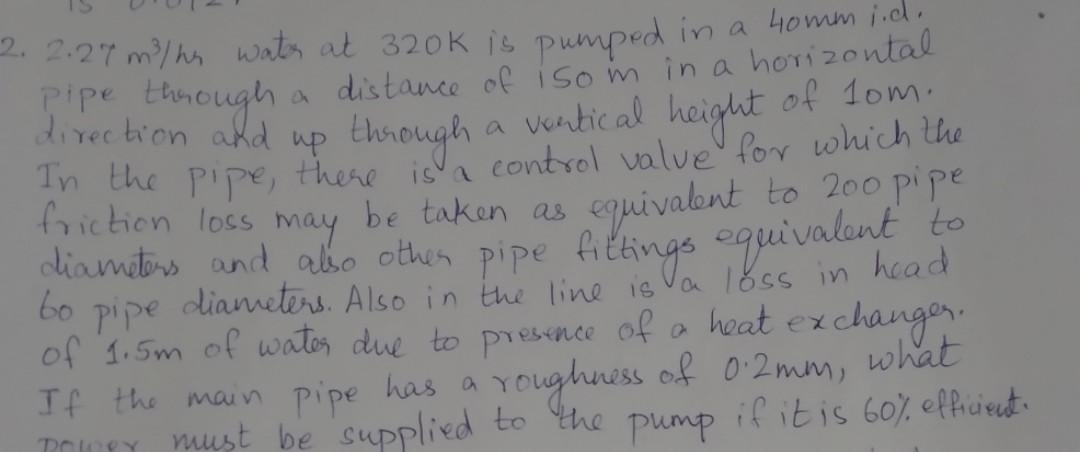 2. 2.27 m³/hr water at 320K is pumped in a 40mm i.d.
pipe through a distance of 150m in a horizontal
direction and up through a vertical height of 10m.
In the pipe, there is a control valve for which the
friction loss may be taken as equivalent to 200 pipe
diameters and also other pipe fittings equivalent to
60 pipe diameters. Also in the line is a loss in head
of 1.5m of water due to presence of a heat exchanger.
If the main pipe has a roughness of 0.2mm, what
power must be supplied to the pump if it is 60% efficient.